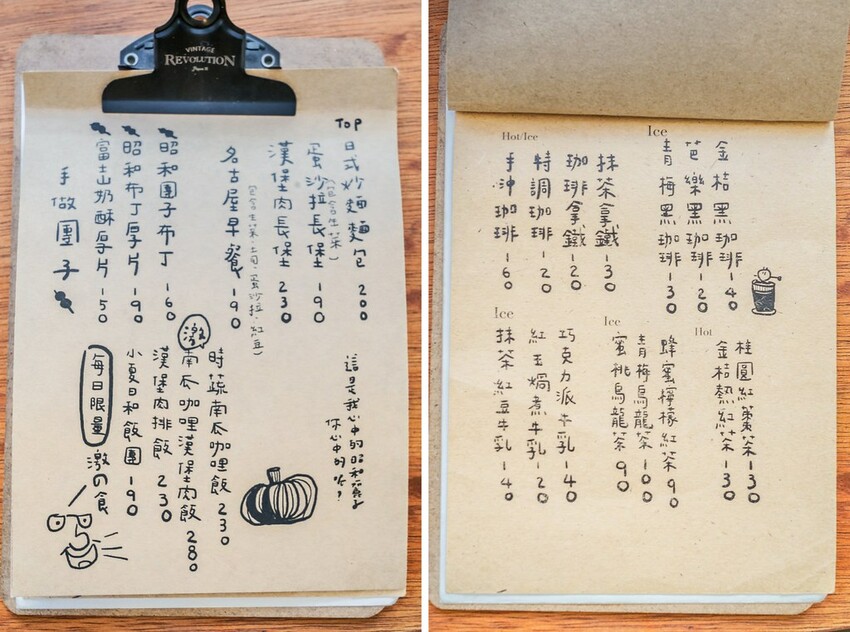 VINTAGE
REVOLUTION
TOP
日式炒麵麵包 200
蛋沙拉長堡 190
(包含生菜)
漢堡肉長堡 230
名古屋早餐 190
(包含生菜、土司、蛋沙拉、紅豆)
昭和團子布丁 160
昭和布丁厚片 190
富士山奶酥厚片 150
手做團子
這是我心中的昭和
你心中的呢?
時蔬南瓜咖哩飯 230
激
南瓜咖哩漢堡肉飯 280
漢堡肉排飯 230
小夏日和飯團 190
每日限量
激の食
Ice
金桔黑咖啡 140
芭樂黑咖啡 120
青梅黑咖啡 130
Hot/Ice
抹茶拿鐵 130
咖啡拿鐵 120
特調咖啡 120
手沖咖啡 160
Hot
桂圓紅棗茶 130
金桔熱紅茶 130
Ice
蜂蜜檸檬紅茶 90
青梅烏龍茶 100
蜜桃烏龍茶 90
Ice
巧克力派牛乳 140
紅玉焗煮牛乳 120
抹茶紅豆牛乳 140